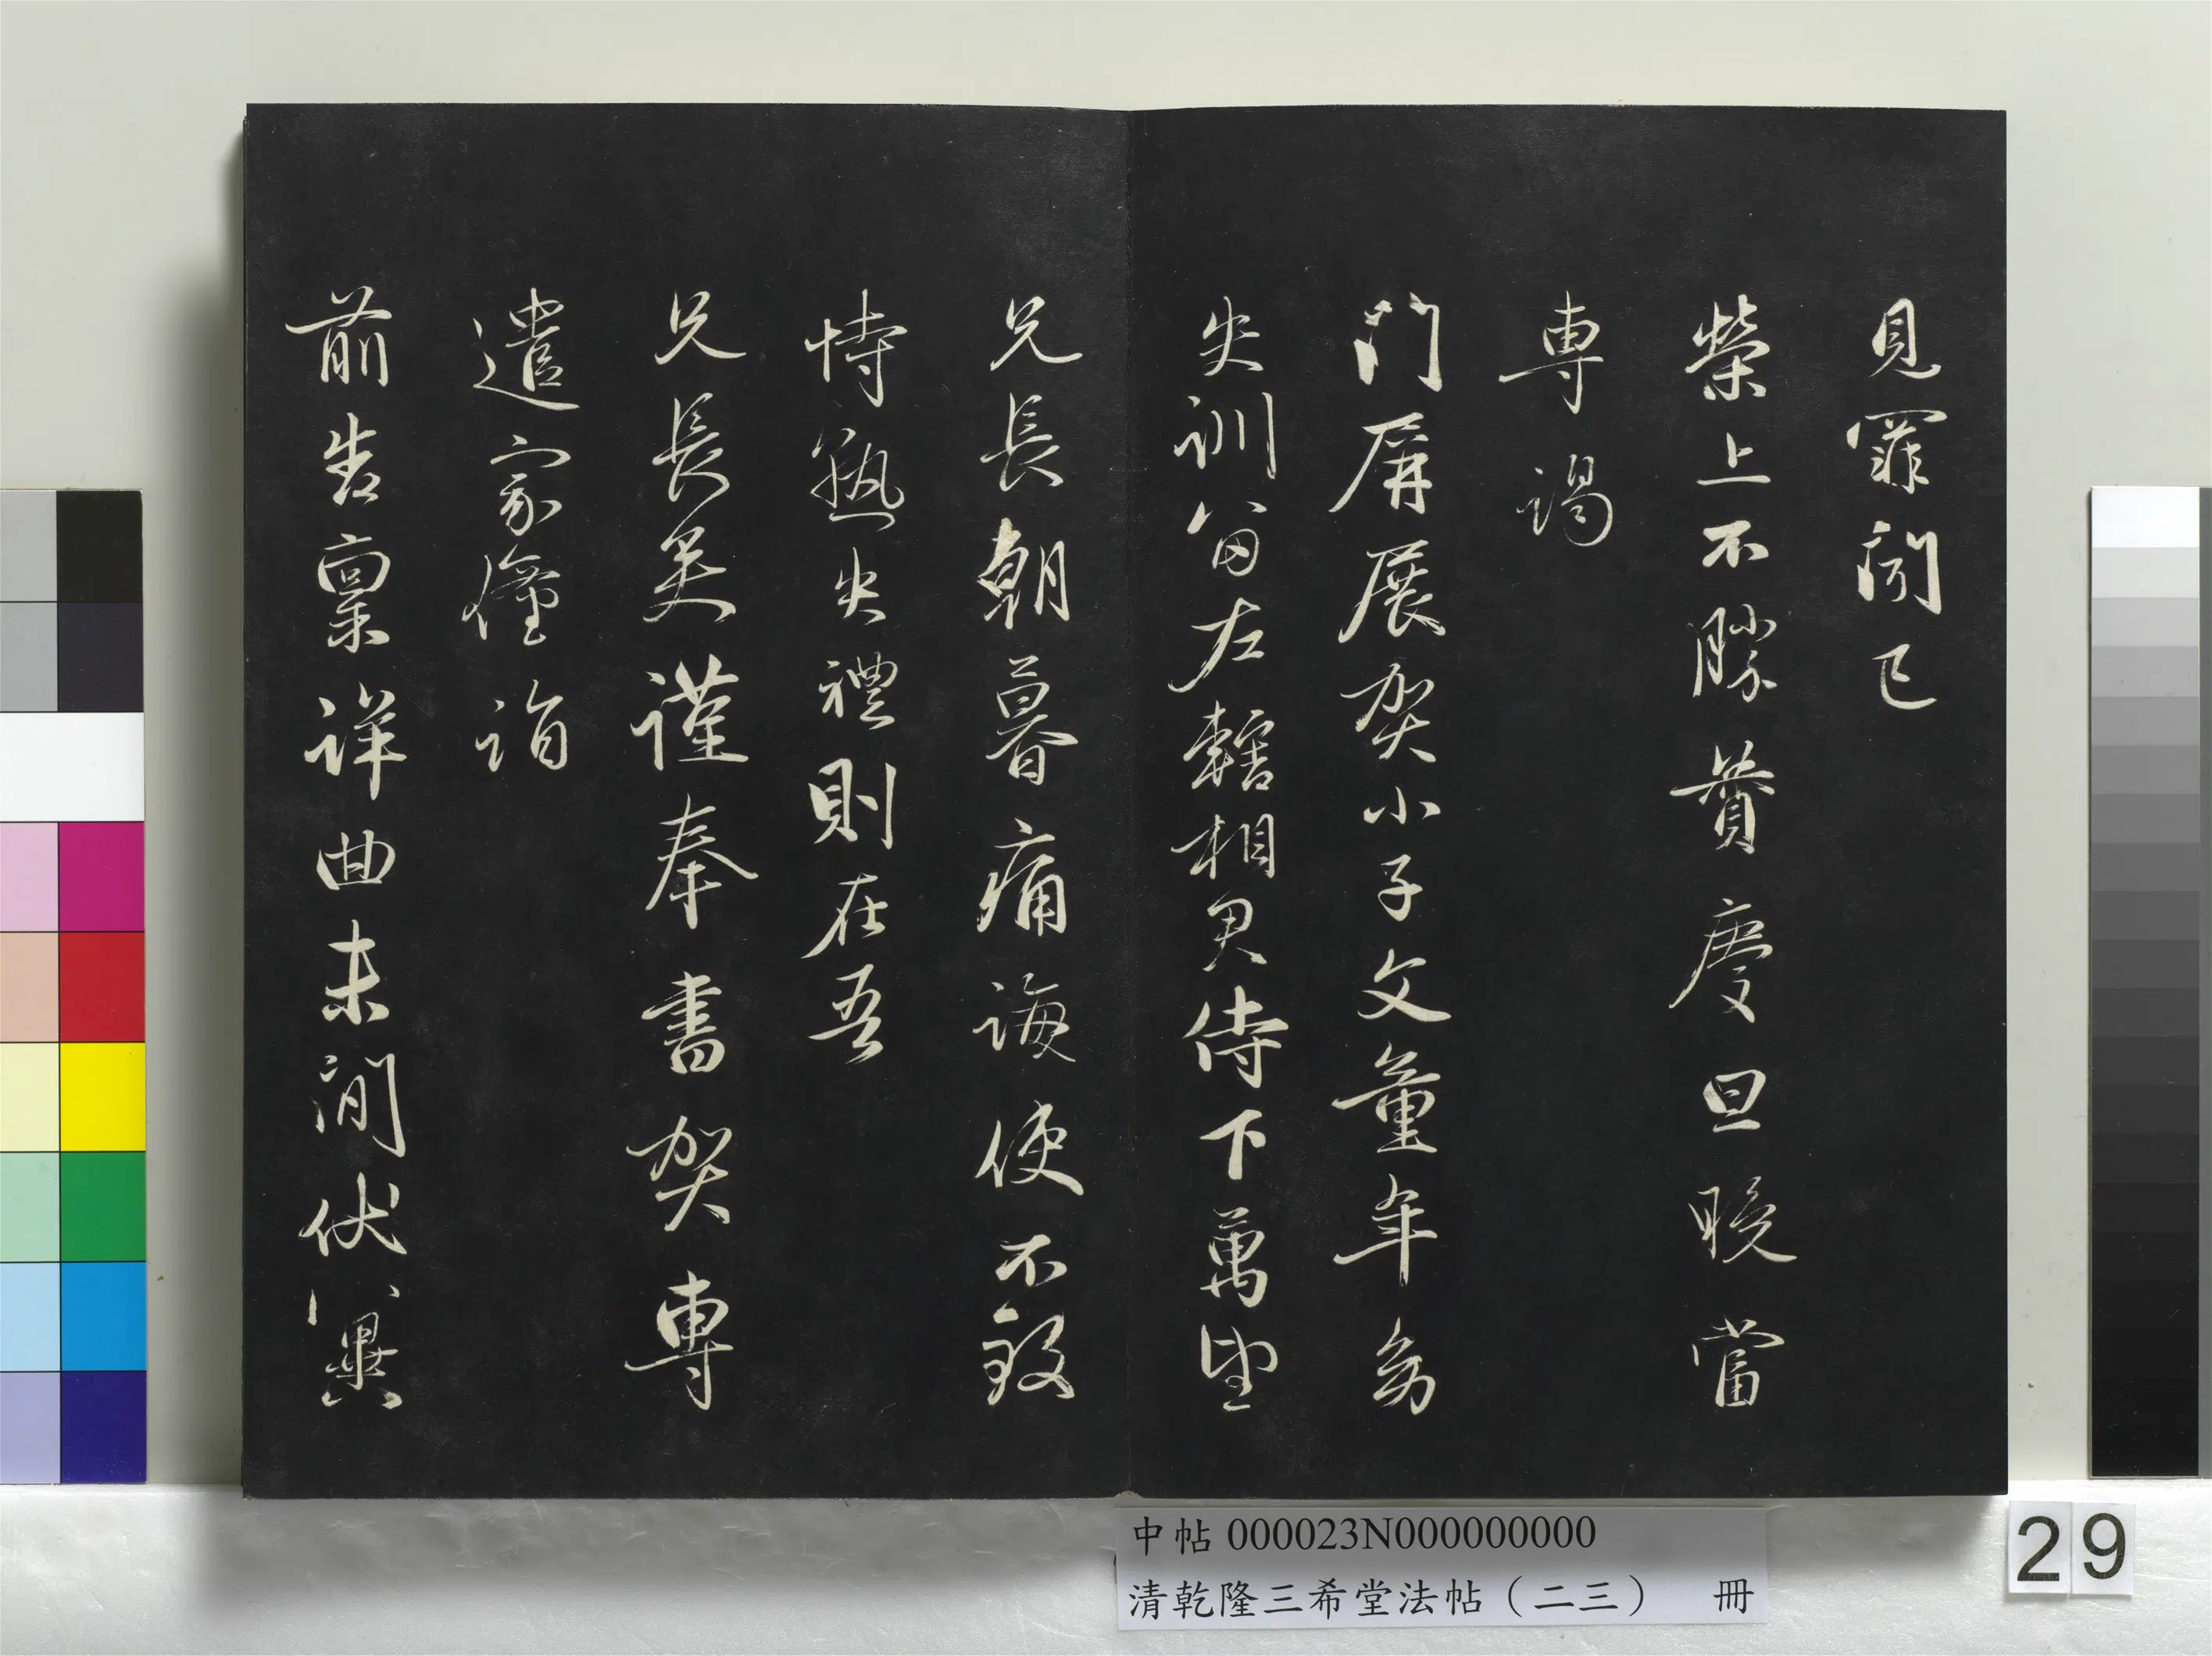 見罪聞已
榮上不勝賛慶旦晚當
專謁
門屏展賀小子文童年幼
失訓留左轄相君侍下萬望
兄長朝暮痛誨使不致
恃熟失禮則在吾
兄長矣謹奉書賀專
遣家僮詣
前告稟詳曲未間伏冀
中帖 000023N000000000
清乾隆三希堂法帖（二三） 冊
29